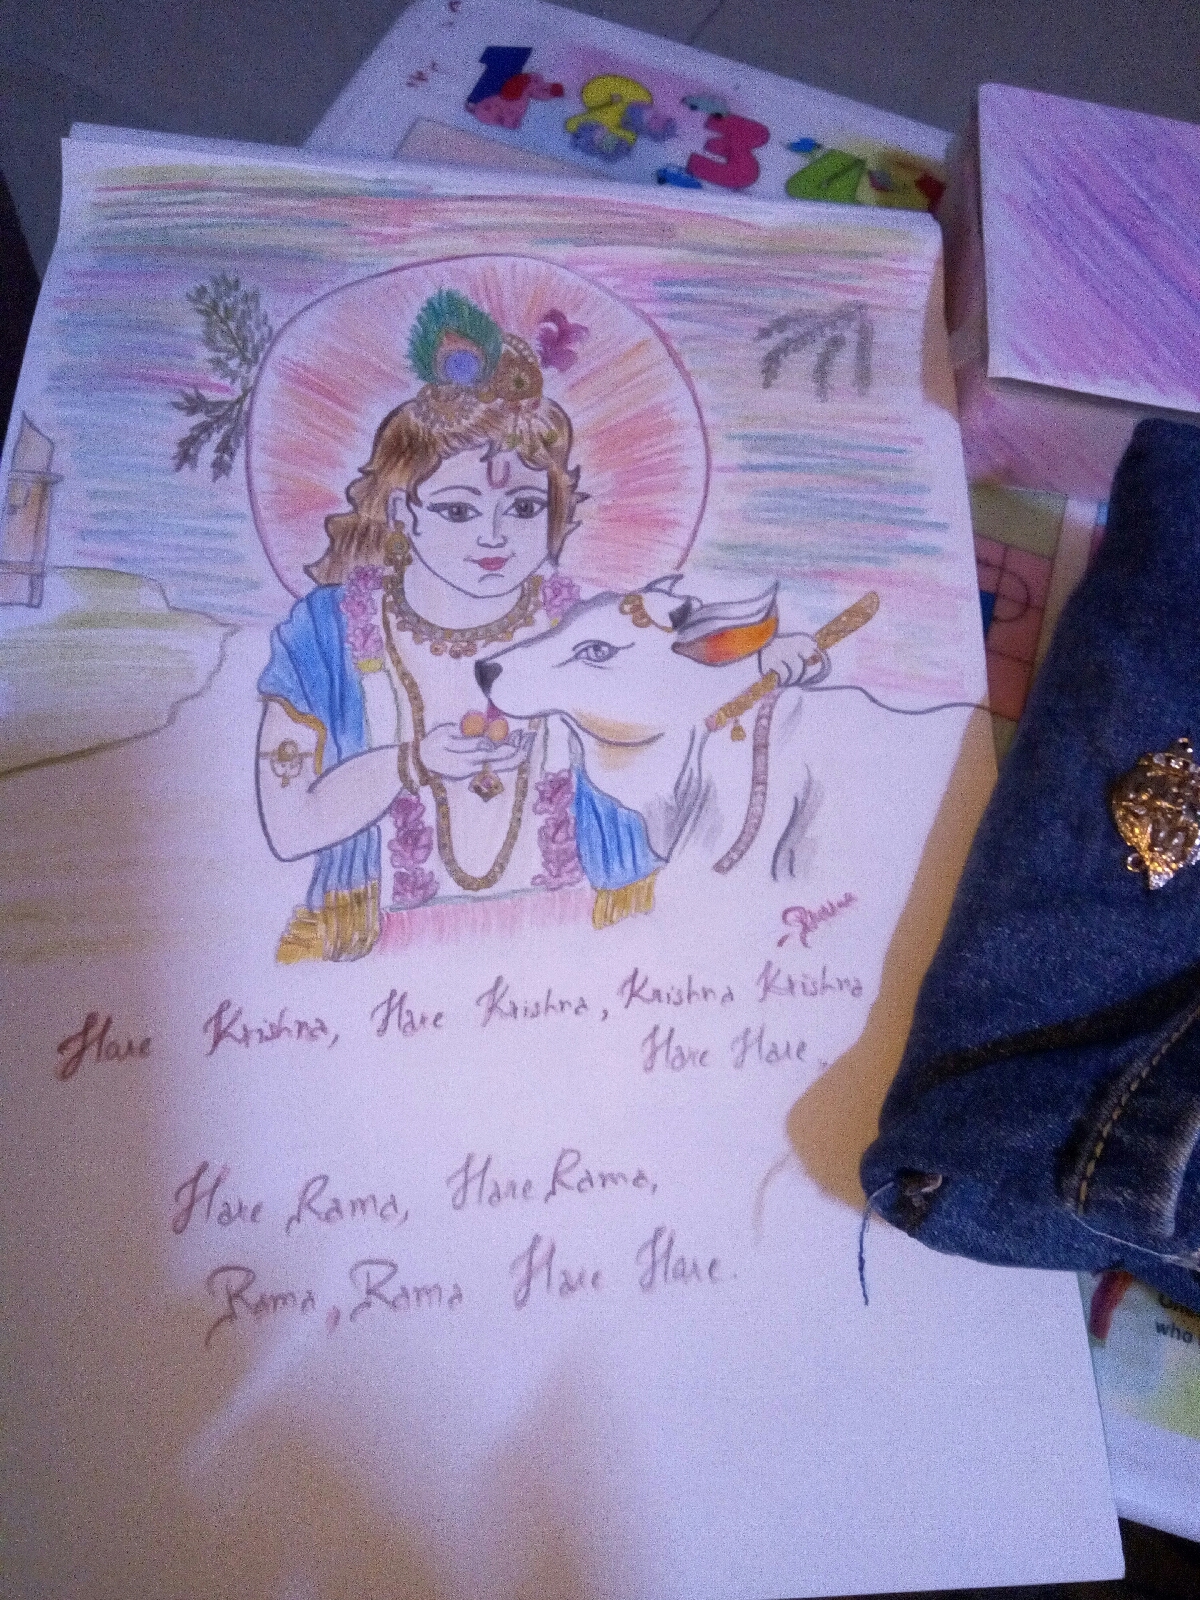 1 2 3
Hare Krishna, Hare Krishna, Krishna Krishna
Hare Hare,
Hare Rama, Hare Rama,
Rama, Rama Hare Hare.
who